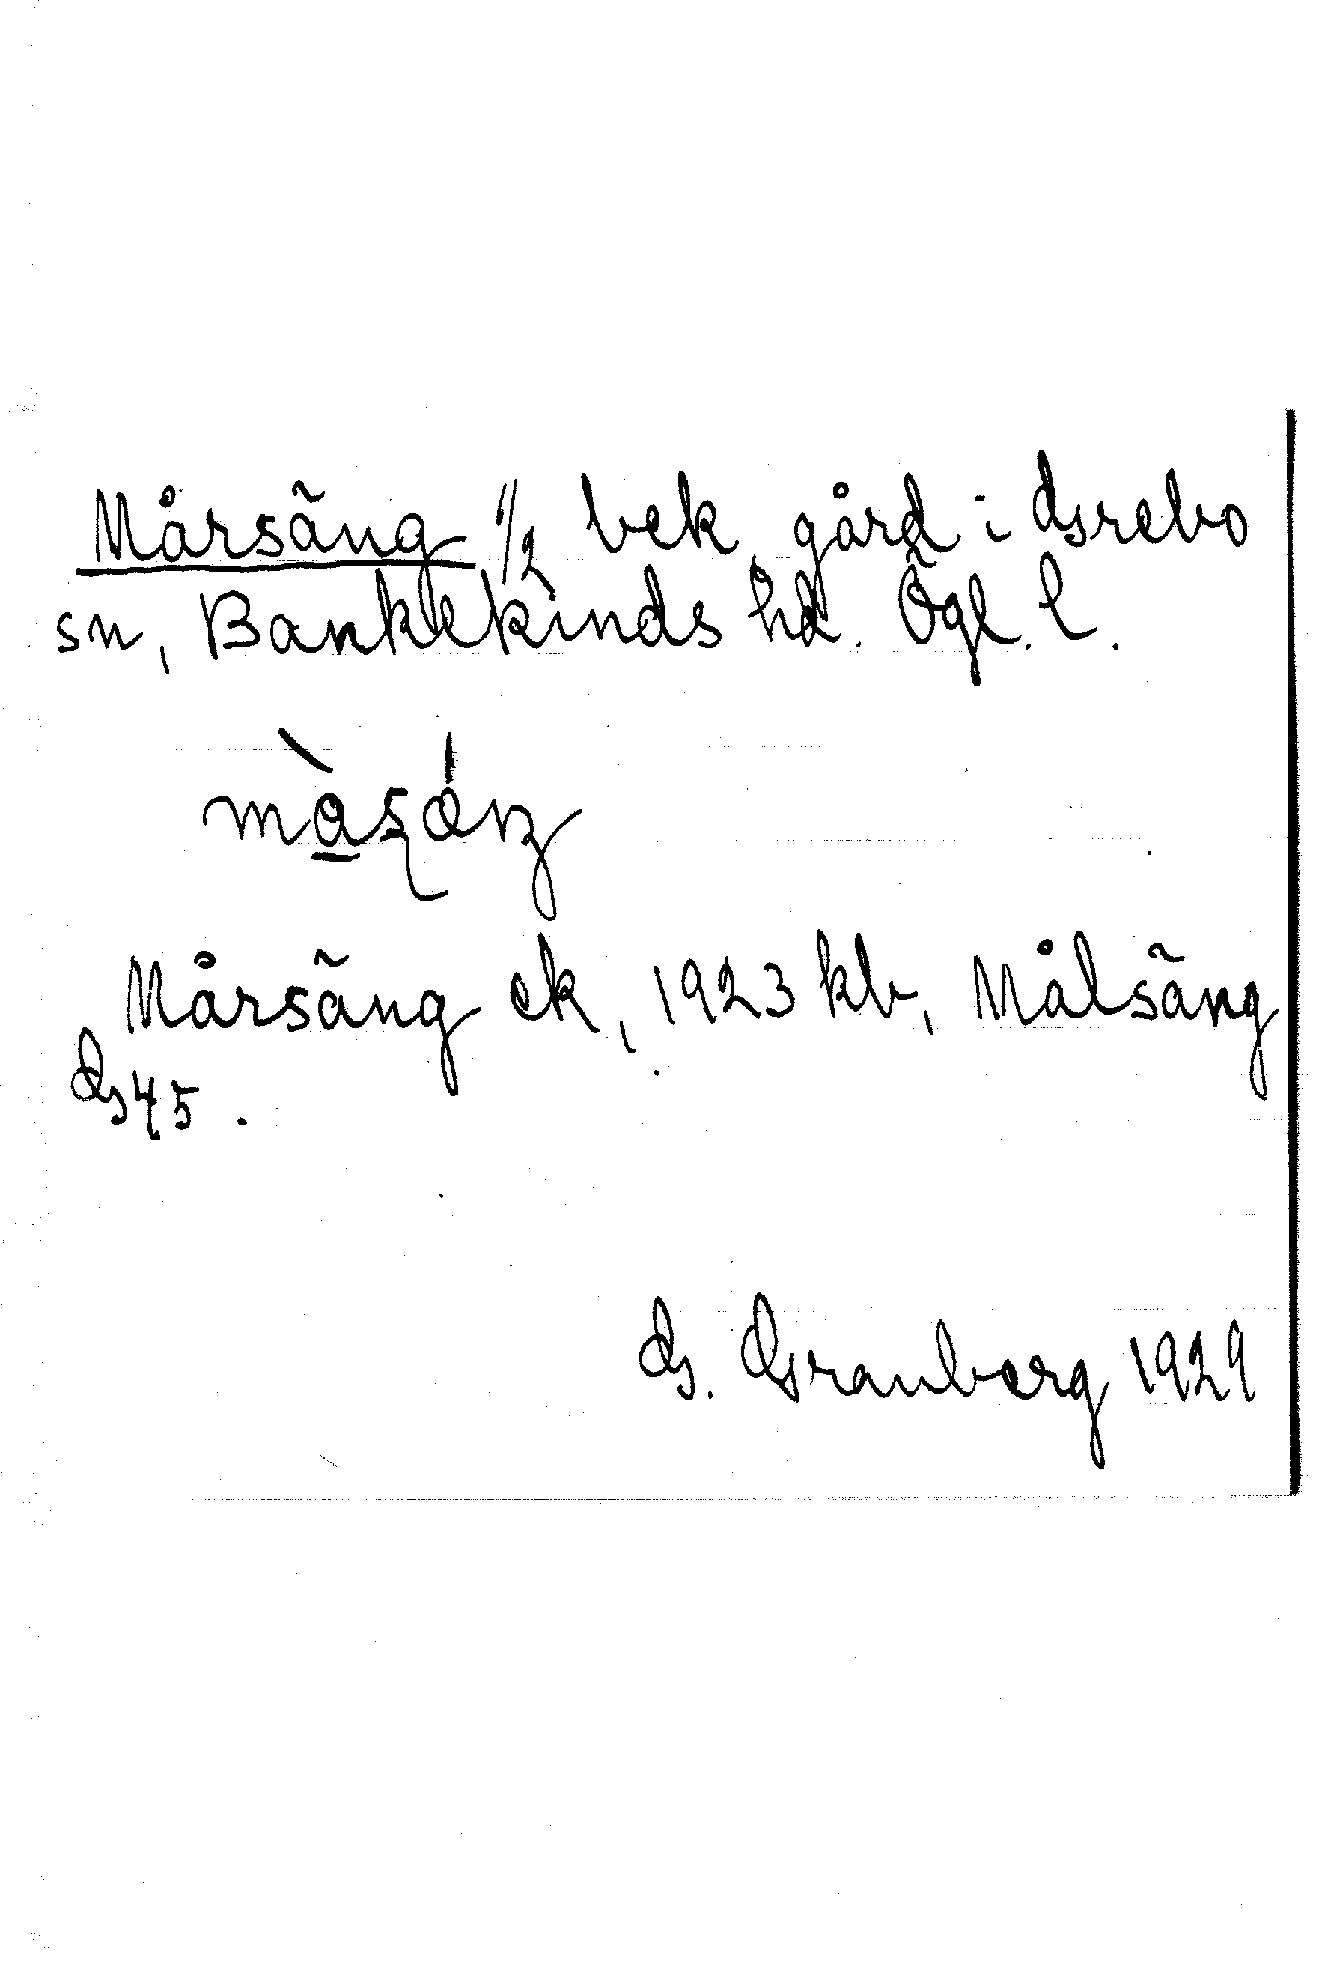 Mårsäng 1/2 bek gård i Grebo
sn, Bankekinds hd. Ögl. l.
Mårsäng ek, 1923 kb, Målsäng
G45.
G. Granberg 1929